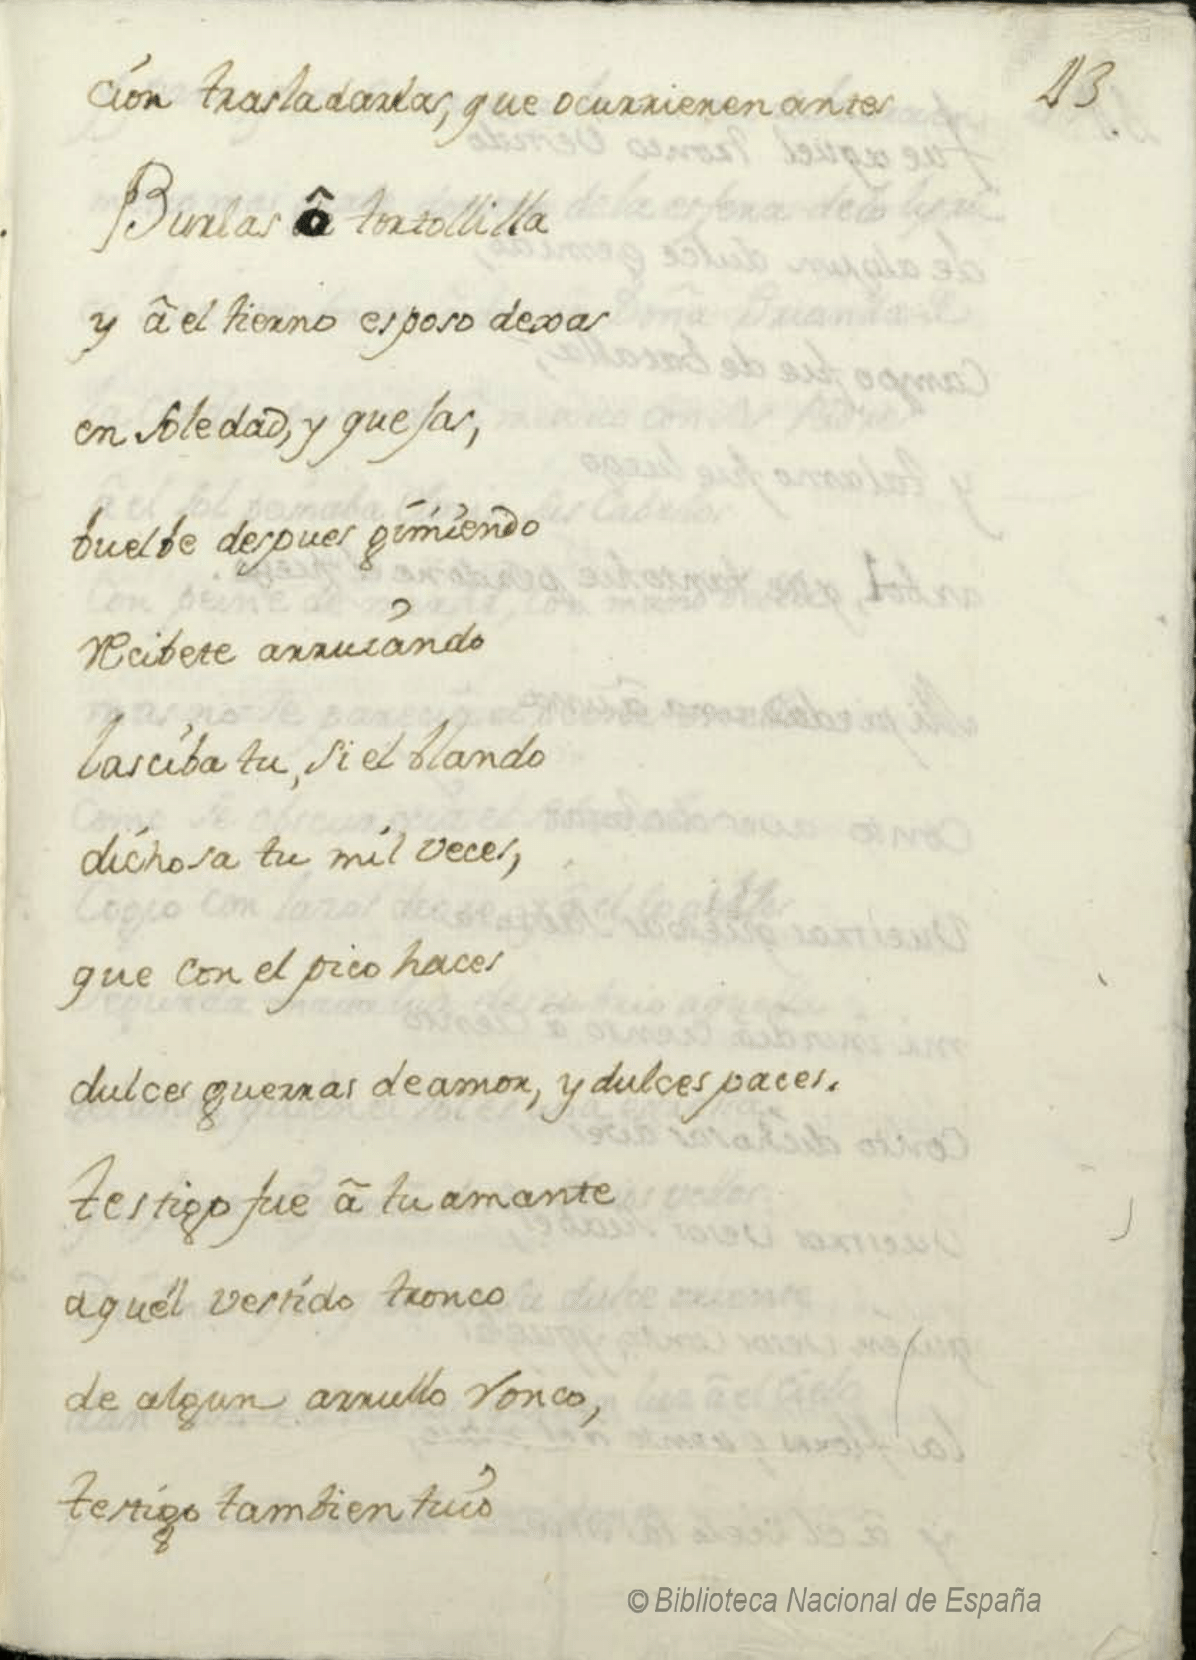 43.
cion trasladarlas, que ocurrieren antes
Burlas ô tortollilla
y â el tierno esposo dexas
en soledad, y quejas,
buelbe despues gimiendo
recibete arrucando
lasciba tu, si el blando
dichosa tu mil veces,
que con el pico haces
dulces guerras de amor, y dulces paces.
testigo fue â tu amante
aquel vestido tronco
de algun arrullo ronco,
testigo tambien tuio
© Biblioteca Nacional de España